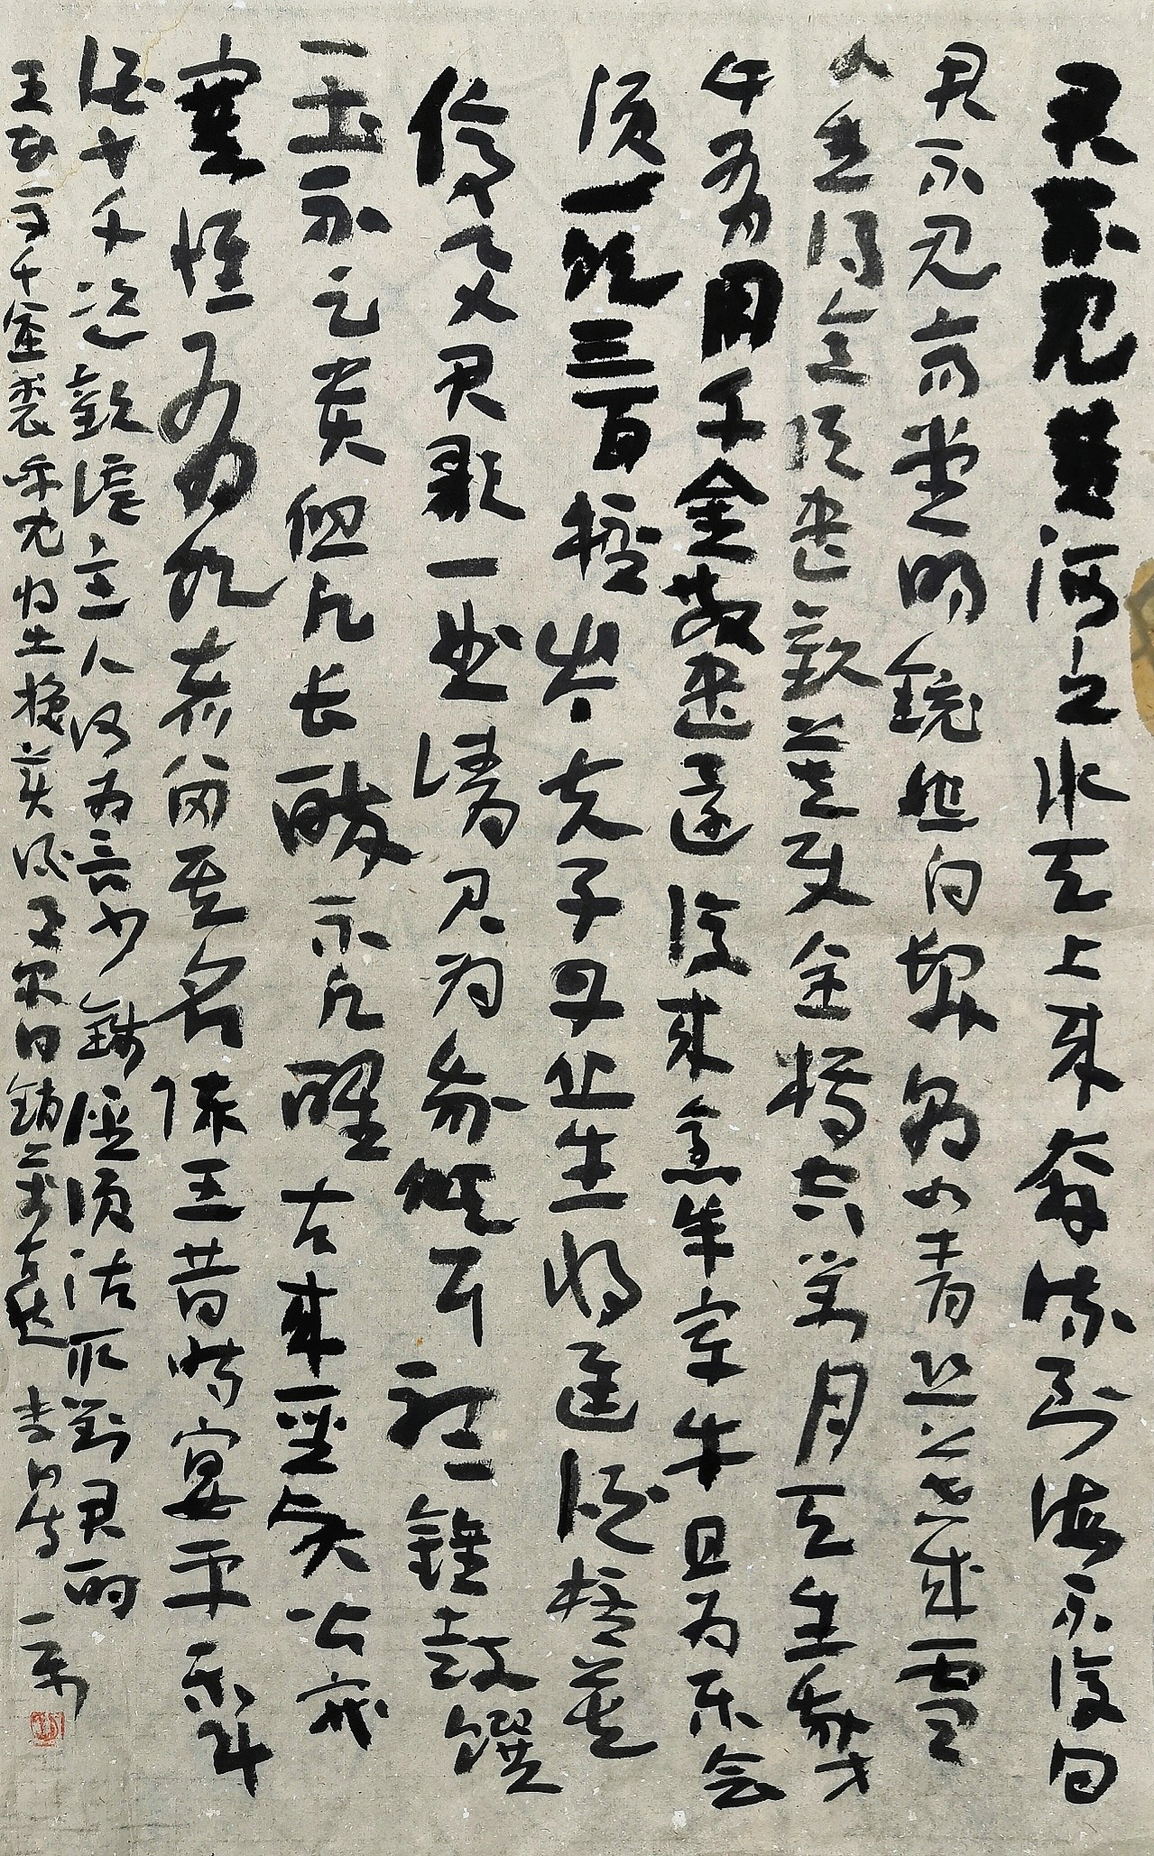 君不見黃河之水天上來奔流到海不復回
君不見高堂明鏡悲白髮朝如青絲暮成雪
人生得意須盡歡莫使金樽空對月天生我才
必有用千金散盡還復來烹羊宰牛且為樂會
須一飲三百杯岑夫子丹丘生將進酒杯莫
停與君歌一曲請君為我傾耳聽鐘鼓饌
玉不足貴但願長醉不願醒古來聖賢皆寂
寞惟有飲者留其名陳王昔時宴平樂斗
酒十千恣歡謔主人何為言少錢徑須沽取對君酌
五花馬千金裘呼兒將出換美酒與爾同銷萬古愁 李白詩